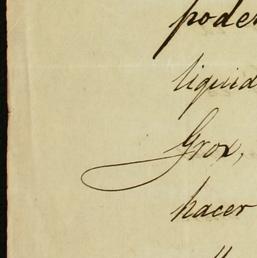 poder
liquid
Grox,
hacer